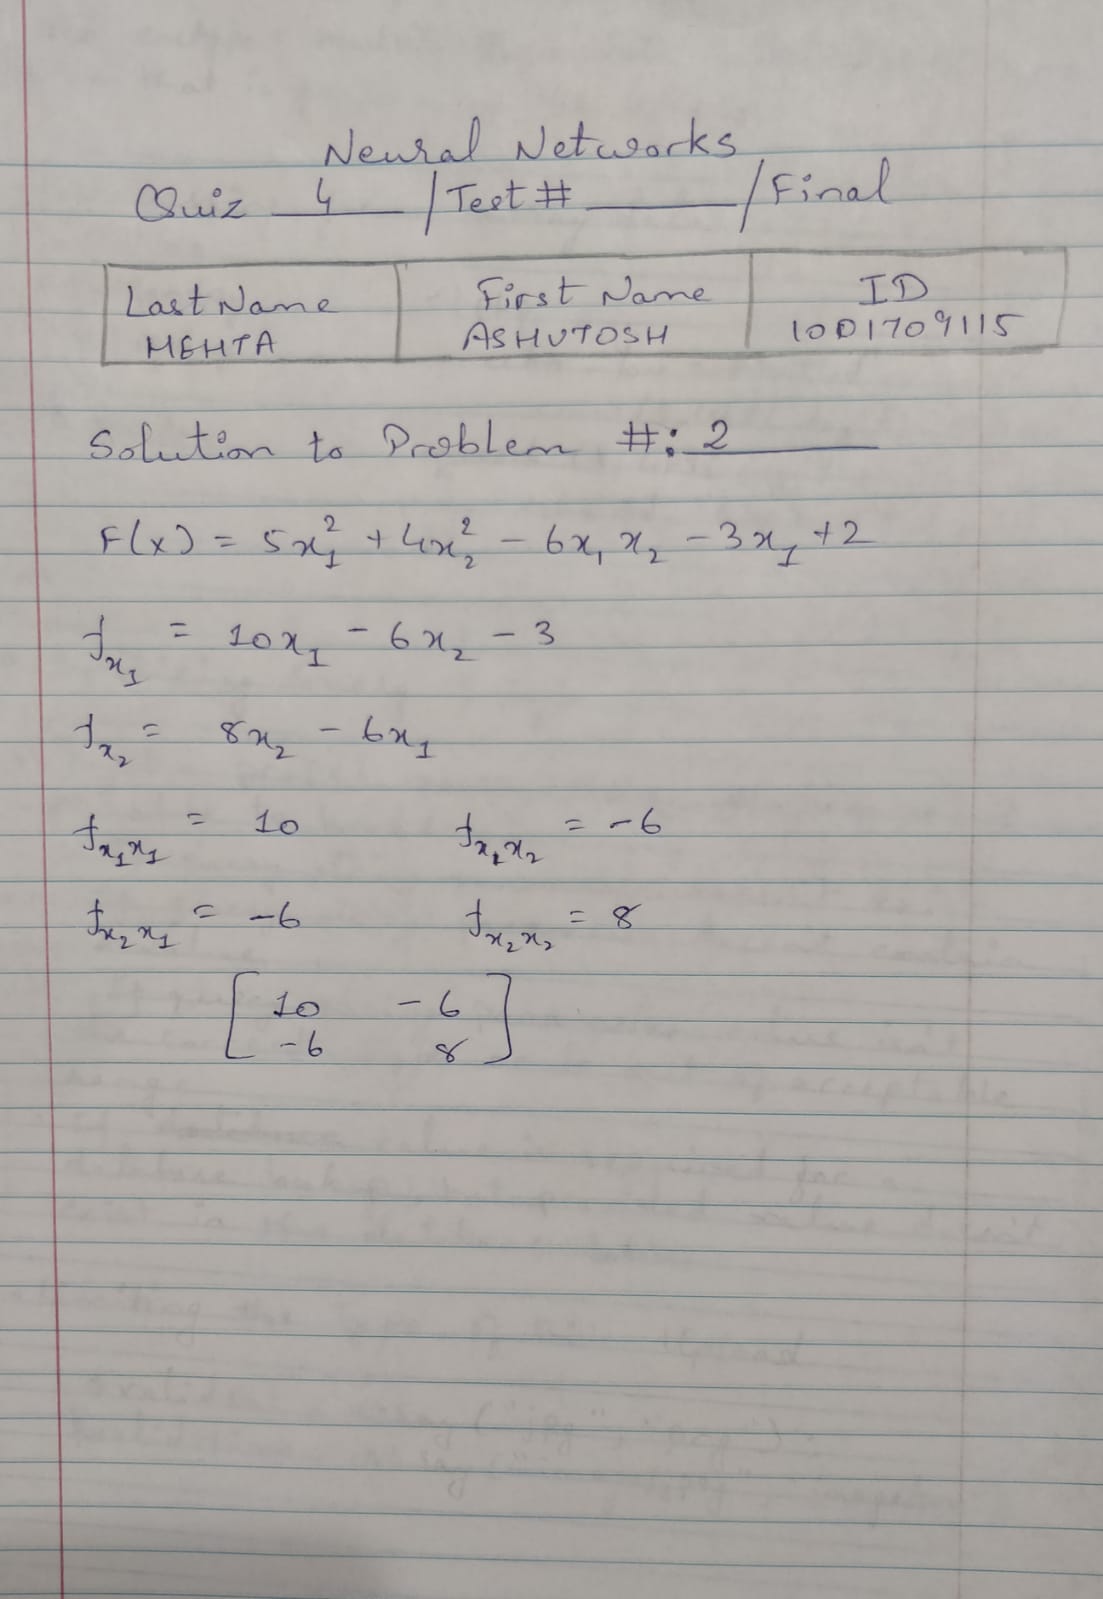 Neural Networks
Quiz 4 / Test # ____ / Final
Last Name First Name ID
MEHTA ASHUTOSH 1001709115
Solution to Problem #: 2
F(x) = 5x₁² + 4x₂² - 6x₁ x₂ - 3x₁ + 2
f_x₁ = 10x₁ - 6x₂ - 3
f_x₂ = 8x₂ - 6x₁
f_x₁x₁ = 10 f_x₁x₂ = -6
f_x₂x₁ = -6 f_x₂x₂ = 8
[ 10 -6 ]
[ -6 8 ]